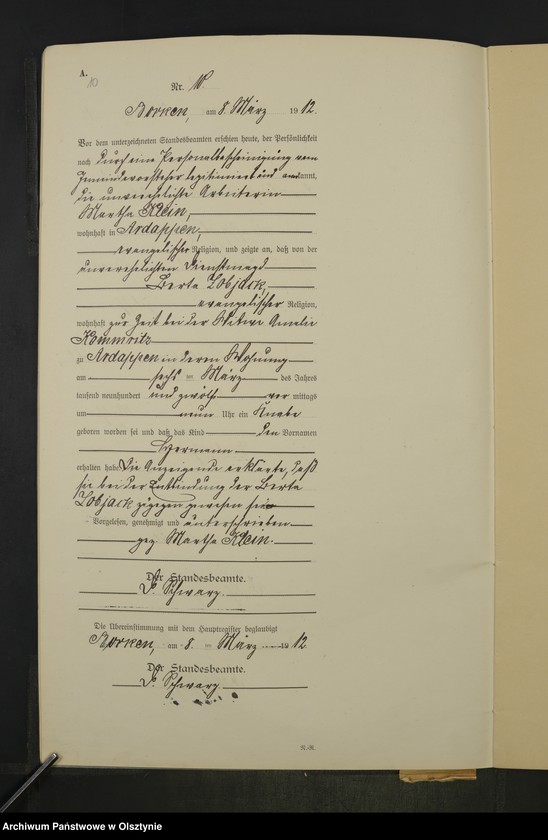 A.
10
Nr. 10.
Borken, am 8. März 1912.
Vor dem unterzeichneten Standesbeamten erschien heute, der Persönlichkeit
nach durch eine Personalbescheinigung vom
Gemeindevorsteher legitimiert und anerkannt,
die unverehelichte Arbeiterin
Martha Klein,
wohnhaft in Ardappen,
evangelischer Religion, und zeigte an, daß von der
unverehelichten Dienstmagd
Berta Lobjack,
evangelischer Religion,
wohnhaft zur Zeit bei der Witwe Amalie
Kommnitz
zu Ardappen in deren Wohnung
am sechs ten März des Jahres
tausend neunhundert und zwölf vor mittags
um neun Uhr ein Knabe
geboren worden sei und daß das Kind den Vornamen
Hermann
erhalten habe. Die Anzeigende erklärte, daß
sie bei der Entbindung der Berta
Lobjack zugegen gewesen sei
Vorgelesen, genehmigt und unterschrieben
gez. Martha Klein.
Der Standesbeamte.
D. Schwarz.
Die Übereinstimmung mit dem Hauptregister beglaubigt
Borken, am 8. ten März 1912
Der Standesbeamte.
D. Schwarz.
R.-R.
Archiwum Państwowe w Olsztynie